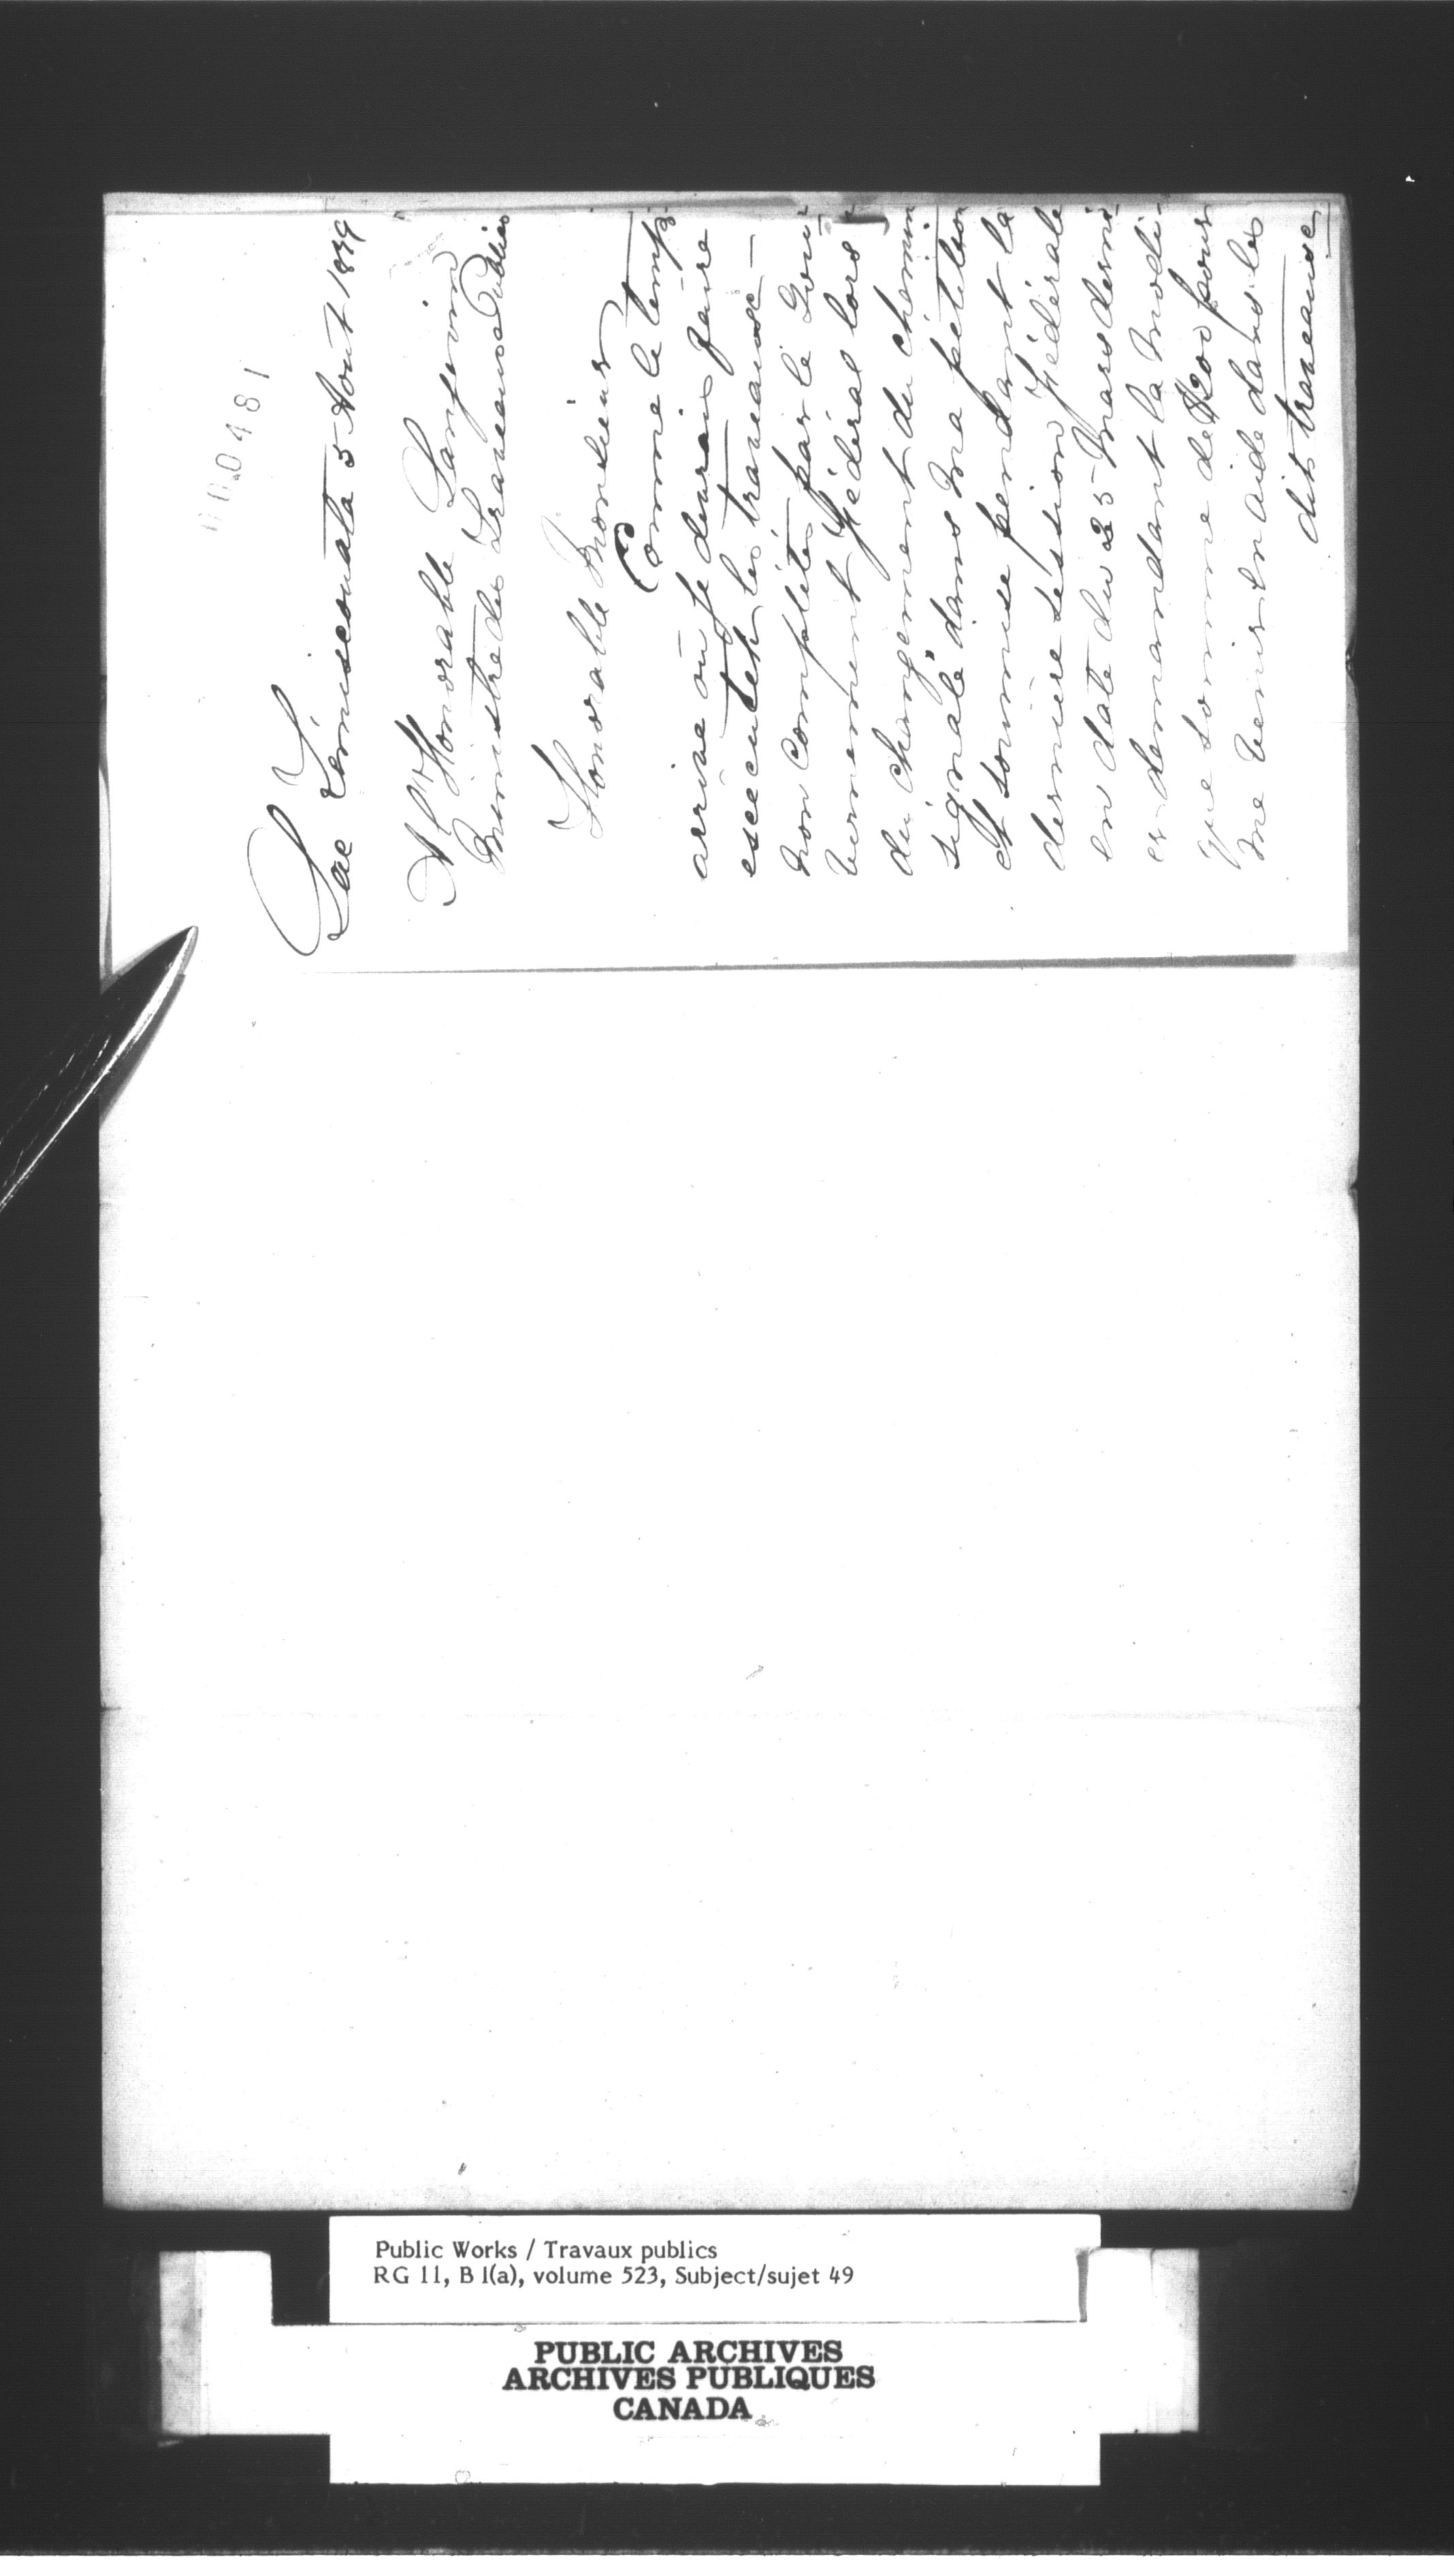 100481
Lac Témiscouata 5 Aout 1879
A l'Honorable Langevin
Ministre des Travaux Publics
Honorable Monsieur
Comme le temps
arrive où je devrais faire
exécuter les travaux
non complétés par le Gou-
vernement Fédéral lors
du changement du chemin
signalé dans ma pétition
et soumise pendant la
dernière session Fédérale
en date du 25 Mars derni-
er demandant la modi-
que somme de $200 pour
me venir en aide dans les
dits travaux
Public Works / Travaux publics
RG 11, B 1(a), volume 523, Subject/sujet 49
PUBLIC ARCHIVES
ARCHIVES PUBLIQUES
CANADA